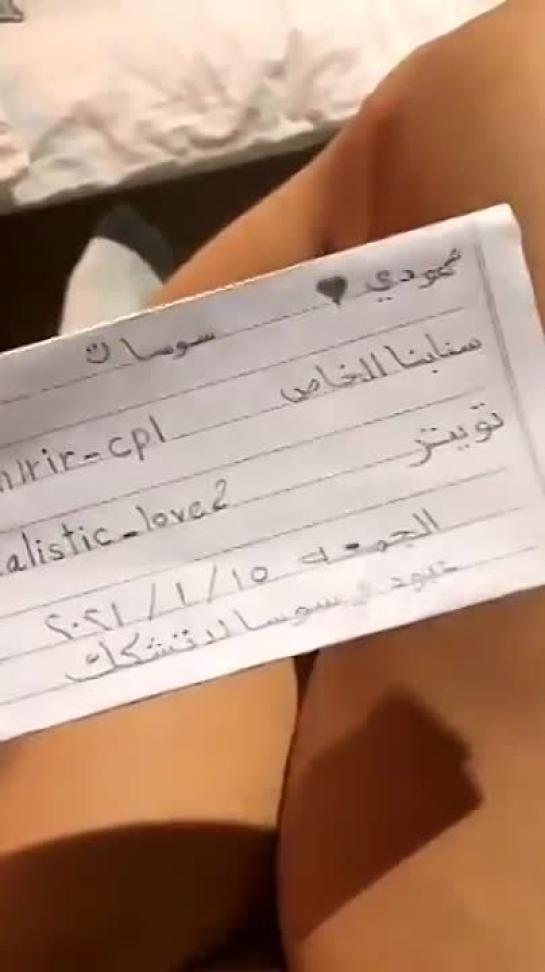 حمودي ♥
سوسا
سنابنا الخاص
rir-cpl
تويتر
alistic-love2
الجمعه ٢٠٢١/١/١٥
و سوسا لا تشكك